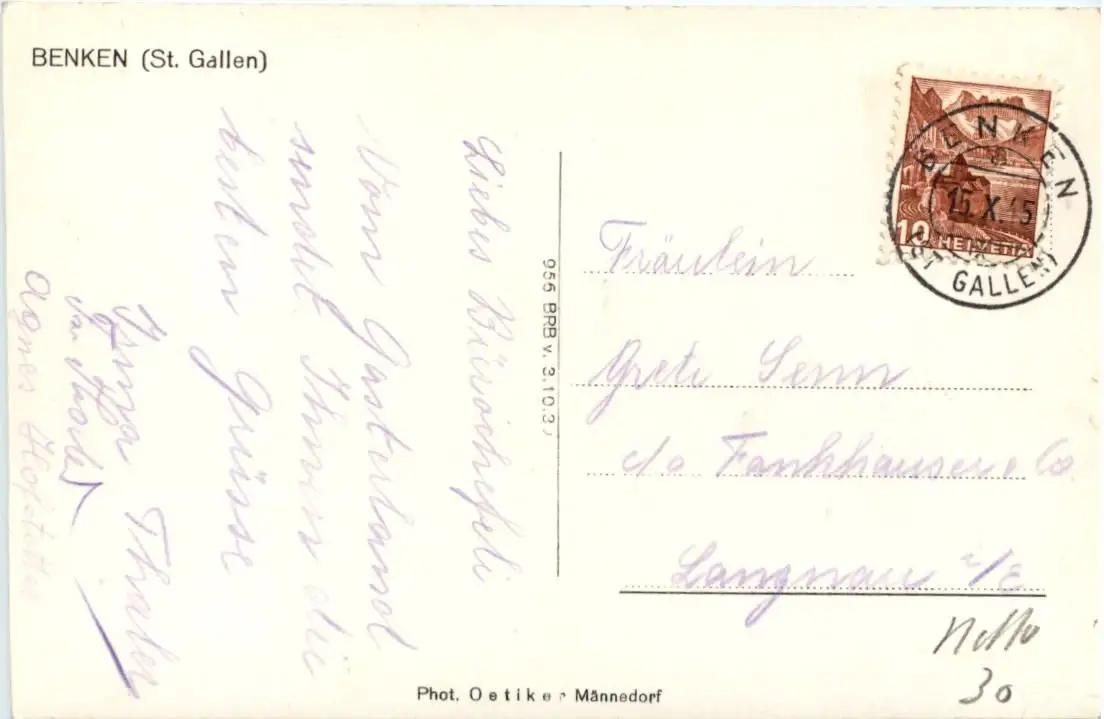 BENKEN (St. Gallen)
Liebes Bürochefeli
Vom Gasterland
sendet Ihnen die
besten Grüsse
Irma Thaler
Agnes Hofstetter
956 BRB v. 3.10.3
Fräulein
Greti Senn
c/o Fankhauser & Co
Langnau i/E
BENKEN
15.X.45
(ST. GALLEN)
10 HELVETIA
Netto
30
Phot. Oetiker Männedorf